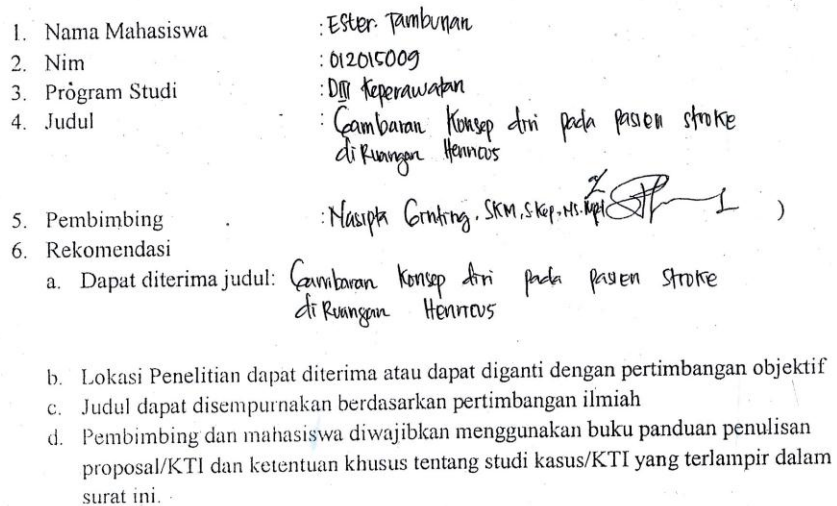 1. Nama Mahasiswa : Ester Tambunan
2. Nim : 012015009
3. Program Studi : DIII Keperawatan
4. Judul : Gambaran Konsep diri pada pasien stroke
di Ruangan Henricus
5. Pembimbing : Nasipta Ginting, SKM, S.Kep., Ns, M.Pd )
6. Rekomendasi
a. Dapat diterima judul: Gambaran Konsep diri pada pasien stroke
di Ruangan Henricus
b. Lokasi Penelitian dapat diterima atau dapat diganti dengan pertimbangan objektif
c. Judul dapat disempurnakan berdasarkan pertimbangan ilmiah
d. Pembimbing dan mahasiswa diwajibkan menggunakan buku panduan penulisan
proposal/KTI dan ketentuan khusus tentang studi kasus/KTI yang terlampir dalam
surat ini.